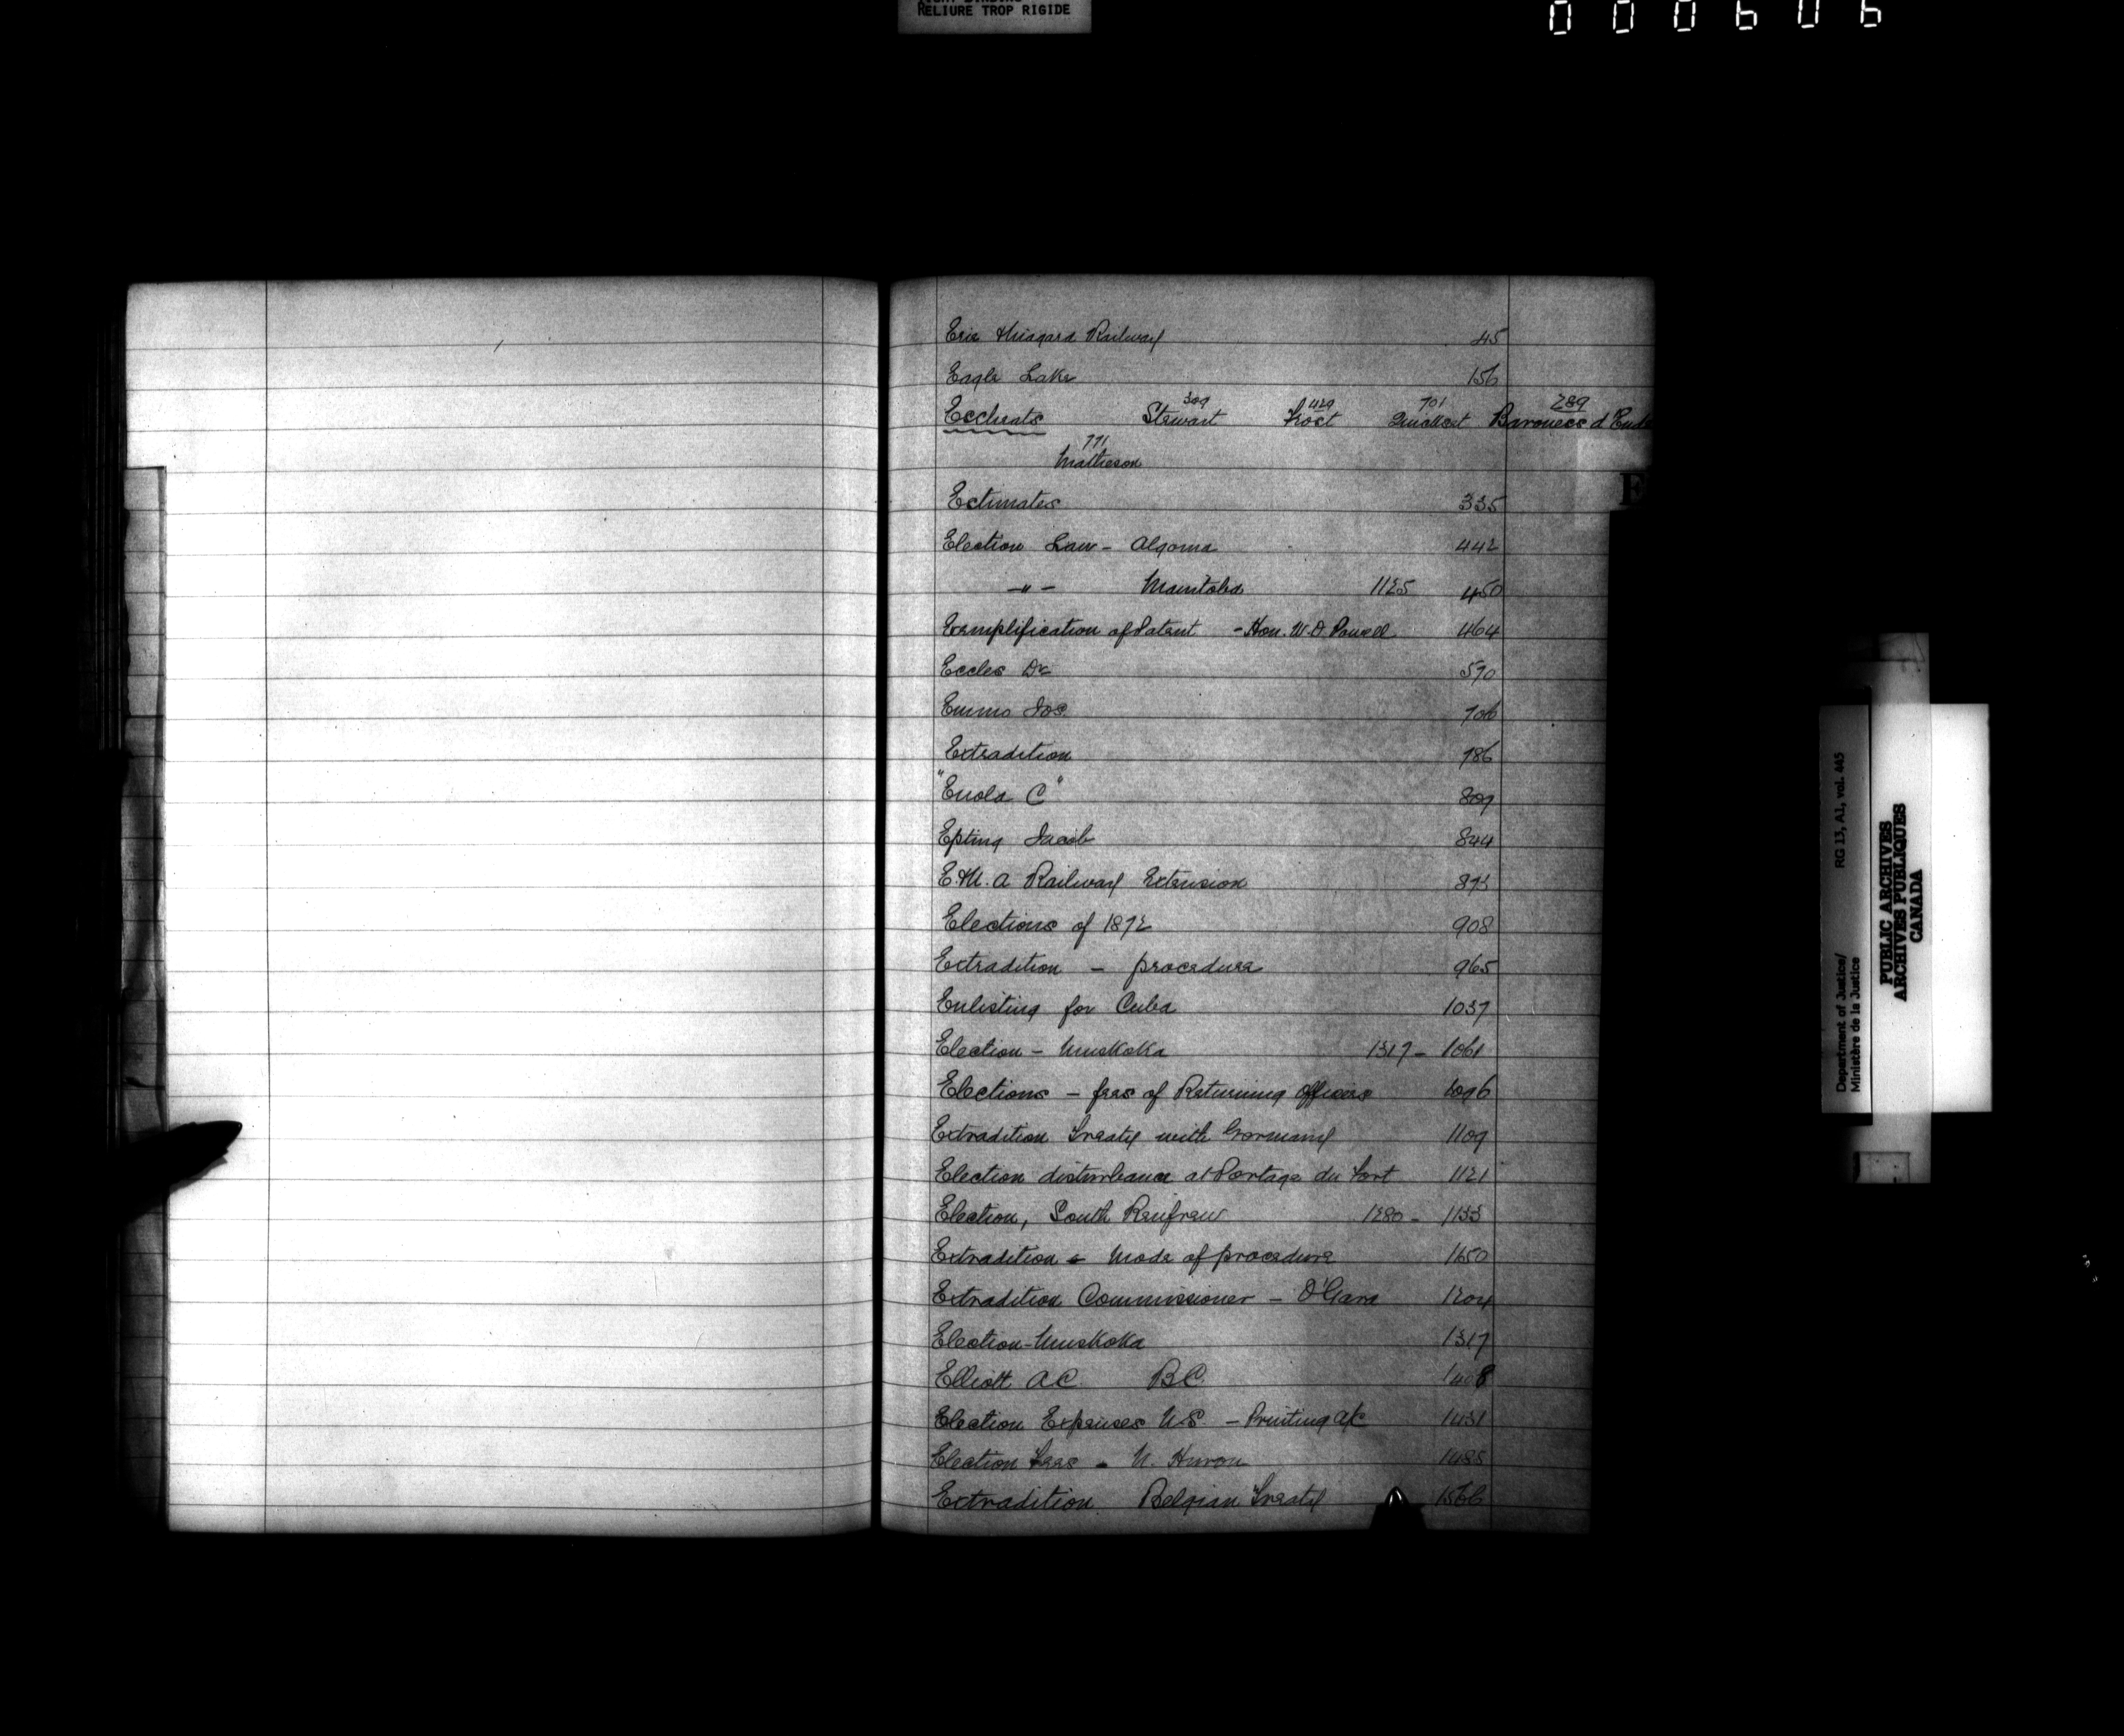 RELIURE TROP RIGIDE
000606
Erie & Niagara Railway 45
Eagle Lake 156
309 429 701 289
Escheats Stewart Frost Smallest Baroness d'Ende
771
Matheson
E
Estimates 335
Election Law - Algoma 442
-"- Manitoba 1125 450
Exemplification of Patent - Hon. W. D Powell 464
Eccles Dr 570
Emmo Jos. 706
Extradition 786
"Enola C" 809
Epting Jacob 844
E. & N. A Railway Extension 893
Elections of 1872 908
Extradition - procedure 965
Enlisting for Cuba 1037
Election - Muskoka 1317 - 1061
Elections - fees of Returning Officers 1096
Extradition Treaty with Germany 1109
Election disturbance at Portage du Fort 1121
Election, South Renfrew 1280 - 1133
Extradition - Mode of procedure 1150
Extradition Commissioner - O'Gara 1204
Election - Muskoka 1317
Elliott A C. B C. 1408
Election Expenses N. S. - Printing a/c 1431
Election Fees - N. Huron 1485
Extradition Belgian Treaty 1566
Department of Justice/ RG 13, A1, vol. 445
Ministère de la Justice
PUBLIC ARCHIVES
ARCHIVES PUBLIQUES
CANADA